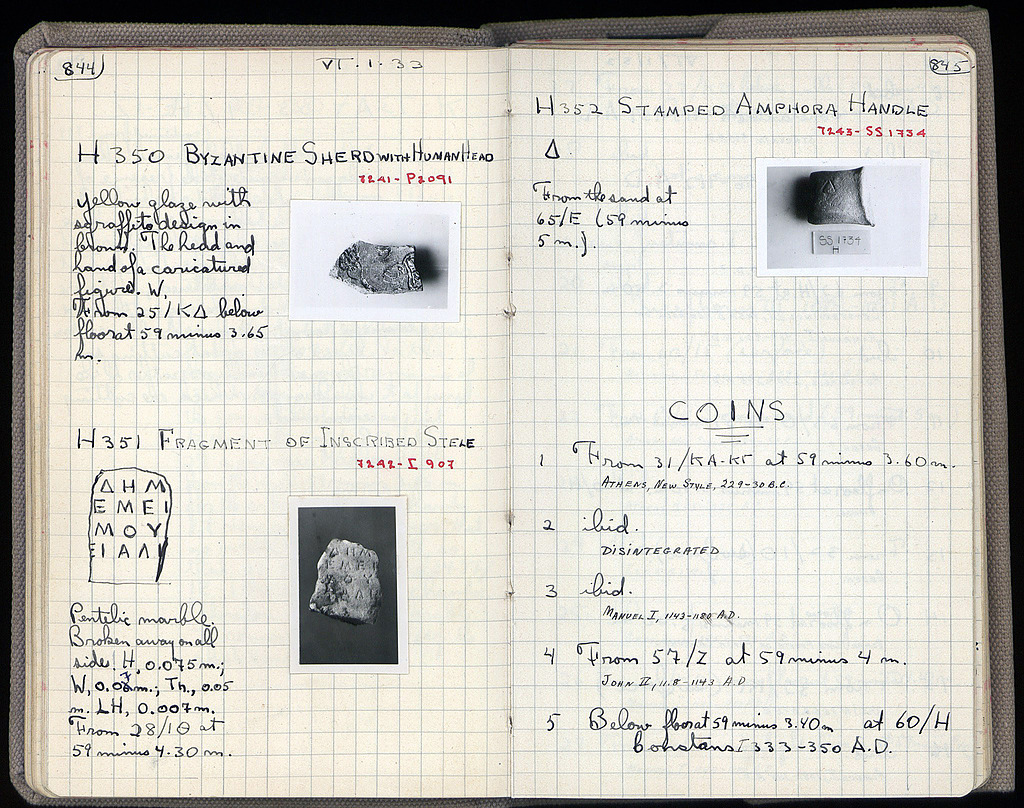 844
VI·1·33
H 350 BYZANTINE SHERD WITH HUMAN HEAD
7241-P2091
Yellow glaze with
sgraffito design in
brown. The head and
hand of a caricatured
figure. W,
From 25/ΚΔ below
floor at 59 minus 3.65
m.
H 351 FRAGMENT OF INSCRIBED STELE
7242-I 907
ΔΗΜ
ΕΜΕΙ
ΜΟΥ
ΕΙΑΛΙ
Pentelic marble.
Broken away on all
sides. H, 0.075 m.;
W, m.; Th., 0.05
m. LH, 0.007 m.
From 28/ΙΘ at
59 minus 4.30 m.
845
H 352 STAMPED AMPHORA HANDLE
7243-SS 1734
Δ.
From the sand at
65/E (59 minus
5 m.).
SS 1734
H
COINS
1 From 31/ΚΑ-ΚΓ at 59 minus 3.60 m.
ATHENS, NEW STYLE, 229-30 B.C.
2 ibid.
DISINTEGRATED
3 ibid.
MANUEL I, 1143-1180 A.D.
4 From 57/Z at 59 minus 4 m.
JOHN II, 1118-1143 A.D
5 Below floor at 59 minus 3.40 m at 60/H
Constans I 333-350 A.D.